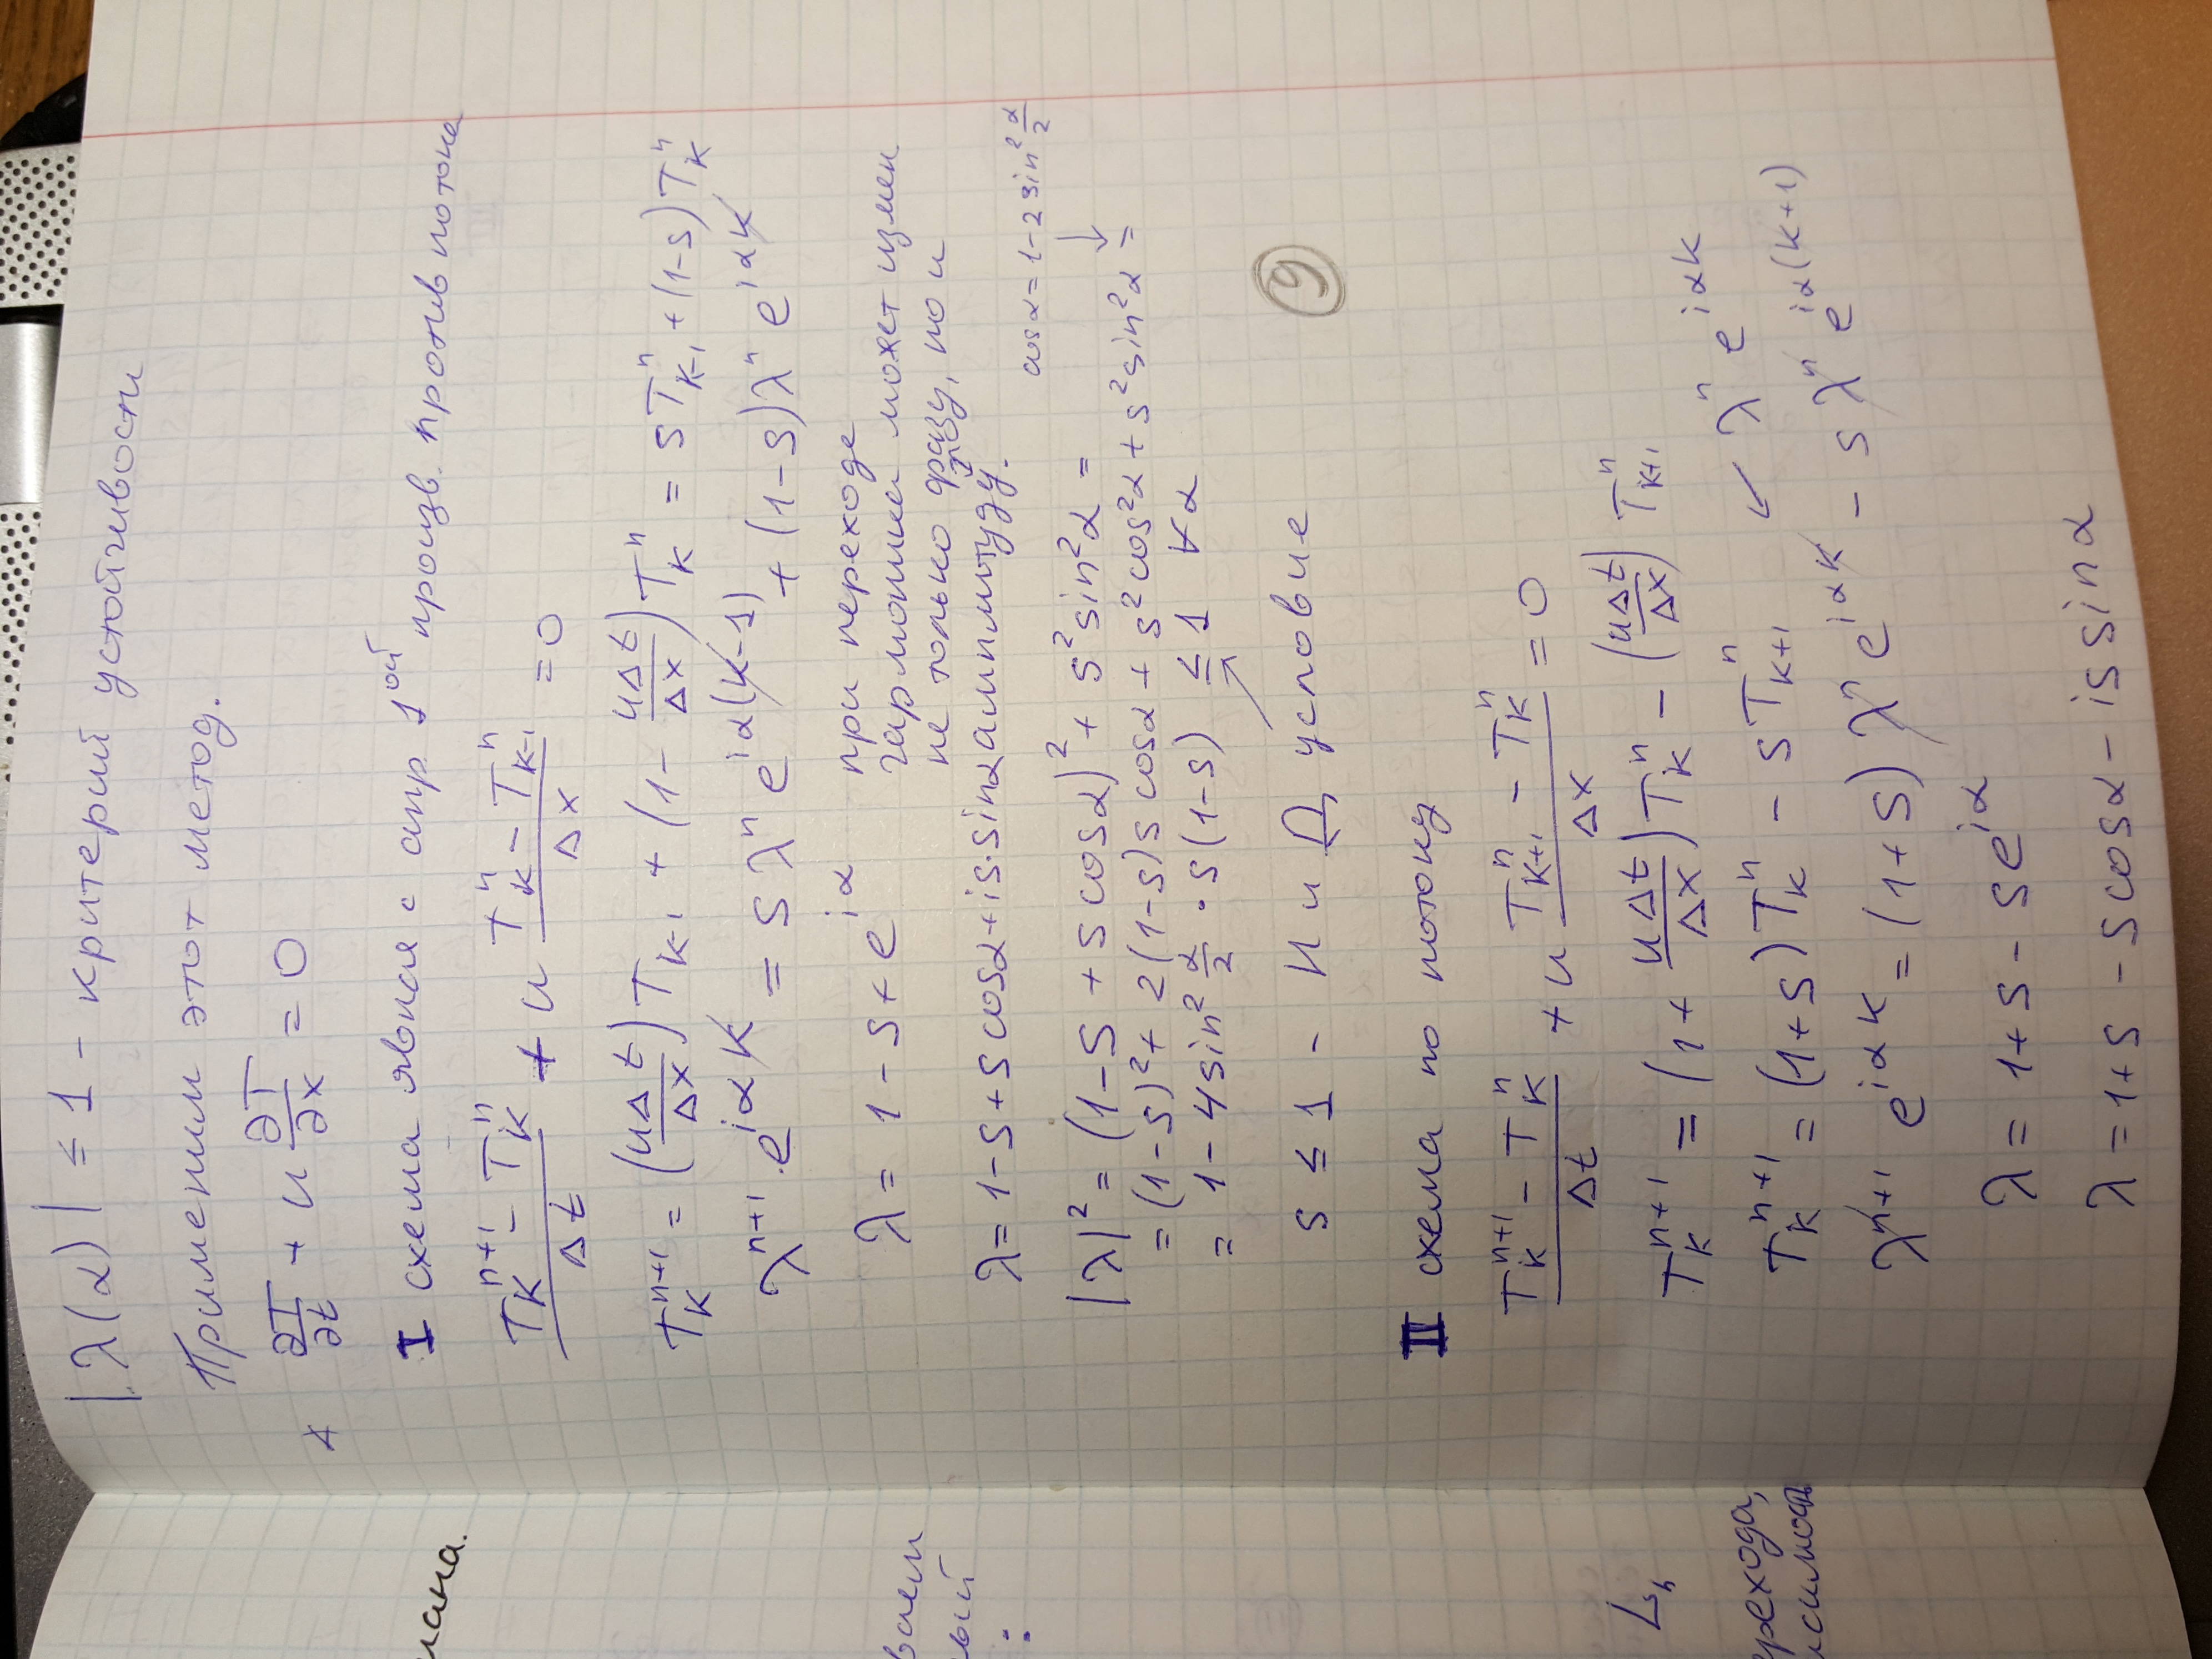 |λ(α)| ≤ 1 - критерий устойчивости
Применим этот метод.
∂T/∂t + u ∂T/∂x = 0
I схема явная с апр. 1ой произв. против потока
(T_K^{n+1} - T_K^n)/Δt + u (T_K^n - T_{K-1}^n)/Δx = 0
T_K^{n+1} = (uΔt/Δx) T_{K-1} + (1 - uΔt/Δx) T_K^n = S T_{K-1}^n + (1-S) T_K^n
λ^{n+1} · e^{iαK} = S λ^n e^{iα(K-1)} + (1-S) λ^n e^{iαK}
λ = 1 - S + e^{iα} при переходе
гармоника может измен
не только фазу, но и
λ = 1 - S + S cosα + iS·sinα амплитуду.
cosα = 1 - 2 sin² α/2
|λ|² = (1 - S + S cosα)² + S² sin²α =
= (1-S)² + 2(1-S)S cosα + S² cos²α + S² sin²α =
= 1 - 4 sin² α/2 · S(1-S) ≤ 1 ∀α
S ≤ 1 - Н и Д условие
9
II схема по потоку
(T_K^{n+1} - T_K^n)/Δt + u (T_{K+1}^n - T_K^n)/Δx = 0
T_K^{n+1} = (1 + uΔt/Δx) T_K^n - (uΔt/Δx) T_{K+1}^n
T_K^{n+1} = (1+S) T_K^n - S T_{K+1}^n ↙ λ^n e^{iαK}
λ^{n+1} e^{iαK} = (1+S) λ^n e^{iαK} - S λ^n e^{iα(K+1)}
λ = 1 + S - S e^{iα}
λ = 1 + S - S cosα - iS sinα